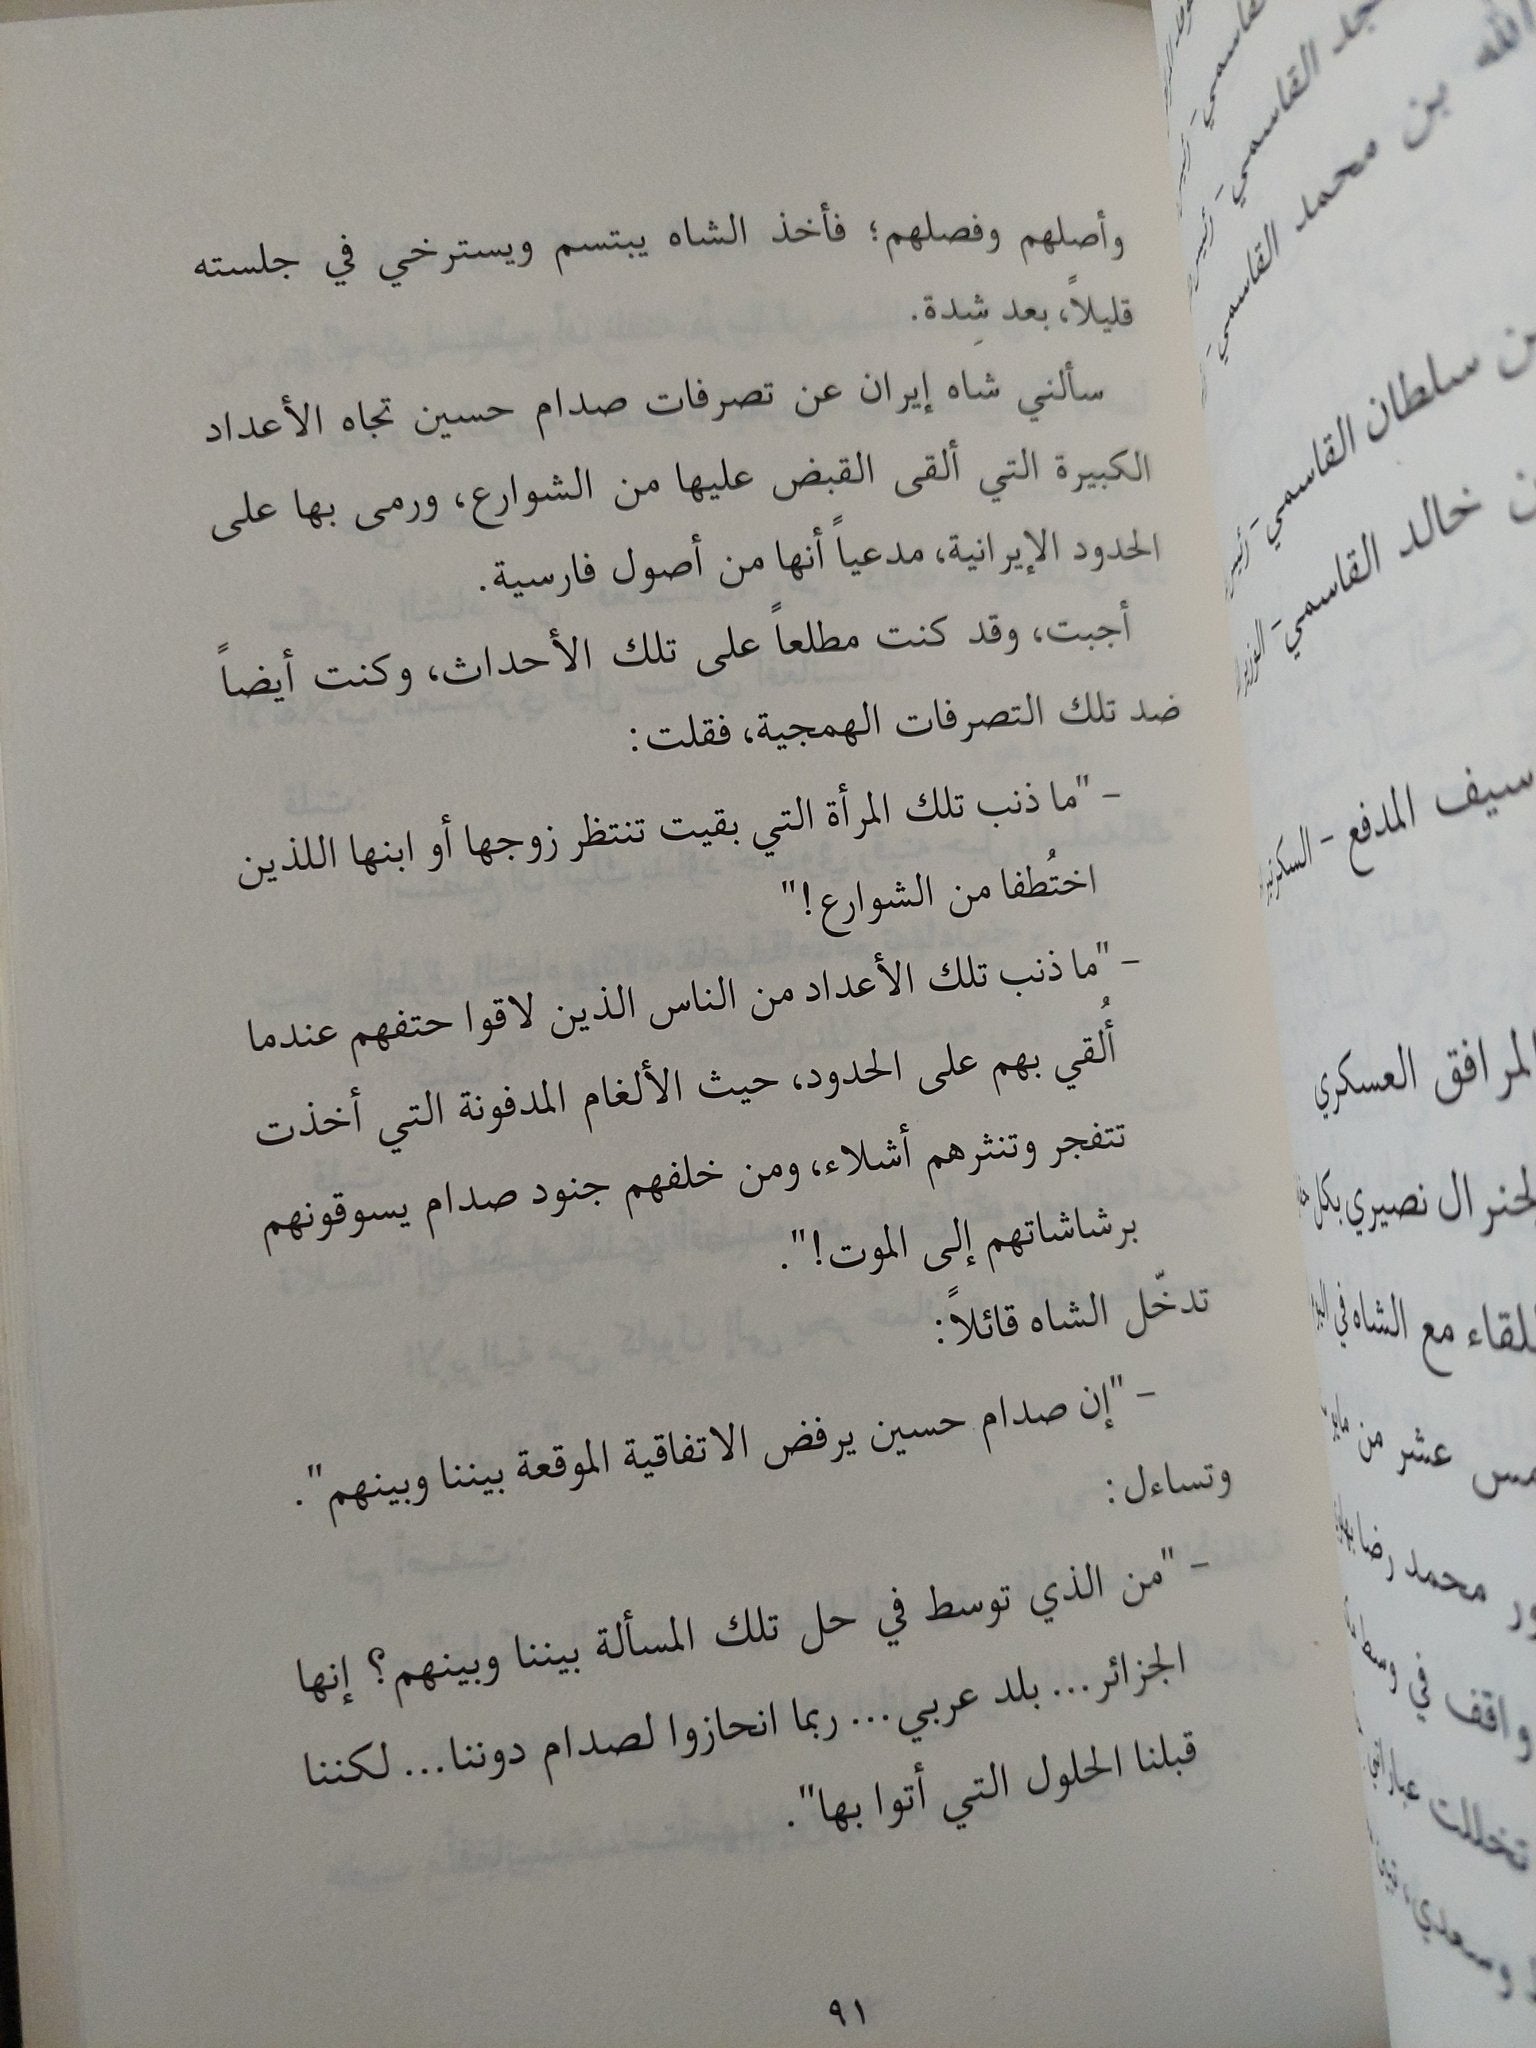 وأصلهم وفصلهم؛ فأخذ الشاه يبتسم ويسترخي في جلسته
قليلاً، بعد شِدة.
سألني شاه إيران عن تصرفات صدام حسين تجاه الأعداد
الكبيرة التي ألقى القبض عليها من الشوارع، ورمى بها على
الحدود الإيرانية، مدعياً أنها من أصول فارسية.
أجبت، وقد كنت مطلعاً على تلك الأحداث، وكنت أيضاً
ضد تلك التصرفات الهمجية، فقلت:
- "ما ذنب تلك المرأة التي بقيت تنتظر زوجها أو ابنها اللذين
اختُطفا من الشوارع!"
- "ما ذنب تلك الأعداد من الناس الذين لاقوا حتفهم عندما
أُلقي بهم على الحدود، حيث الألغام المدفونة التي أخذت
تتفجر وتنثرهم أشلاء، ومن خلفهم جنود صدام يسوقونهم
برشاشاتهم إلى الموت!".
تدخّل الشاه قائلاً:
- "إن صدام حسين يرفض الاتفاقية الموقعة بيننا وبينهم".
وتساءل:
- "من الذي توسط في حل تلك المسألة بيننا وبينهم؟ إنها
الجزائر... بلد عربي... ربما انحازوا لصدام دوننا... لكننا
قبلنا الحلول التي أتوا بها".
٩١
القاسمي -
جد القاسمي - رئيس
الله بن محمد القاسمي -
بن سلطان القاسمي - رئيس
بن خالد القاسمي -
سيف المدفع -
المرافق العسكري
الجنرال نصيري بكل
للقاء مع الشاه في
عشر من مايو
محمد رضا
واقف في وسط
تخللت